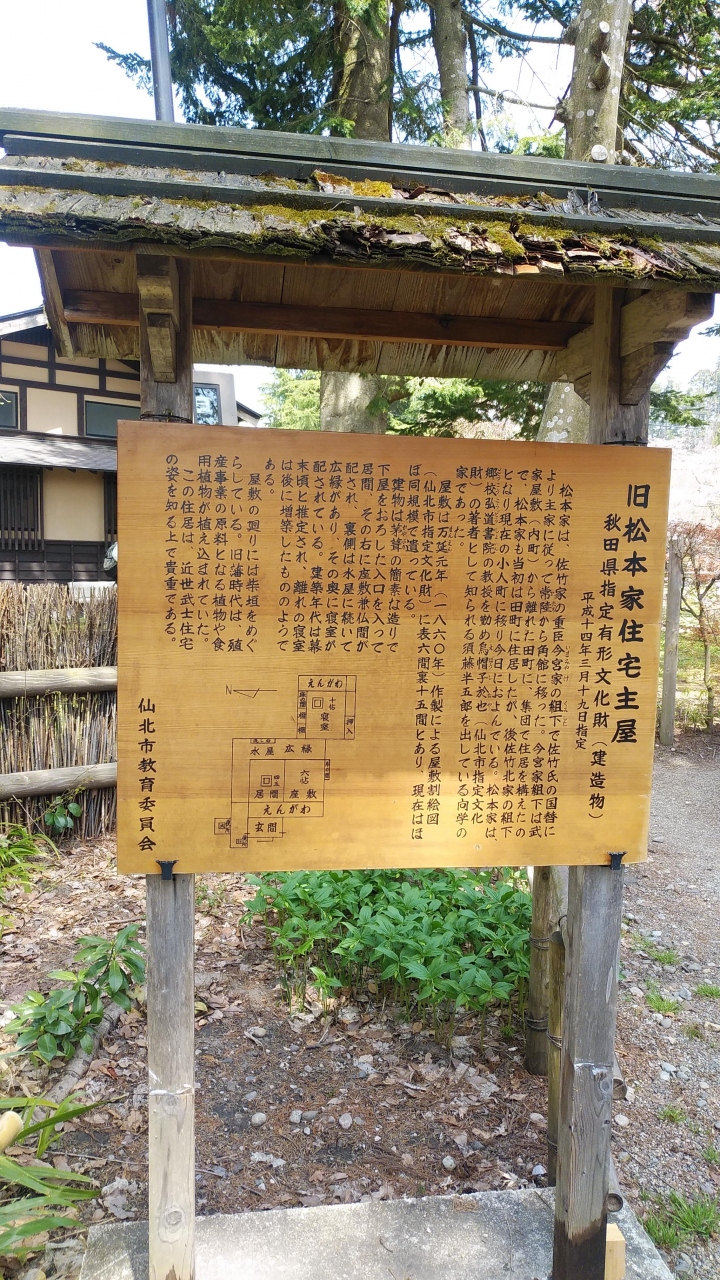 旧松本家住宅主屋
秋田県指定有形文化財(建造物)
平成十四年三月十九日指定
松本家は、佐竹家の重臣今宮家の組下で佐竹氏の国替に
より主家に従って常陸から角館に移った。今宮家組下は武
家屋敷(内町)から離れた田町に、集団で住居を構えたの
で、松本家も当初は田町に住居したが、後佐竹北家の組下
となり現在の小人町に移り今日におよんでいる。松本家は、
郷校弘道書院の教授を勤め烏帽子於也(仙北市指定文化
財)の著者として知られる須藤半五郎を出している向学の
家であった。
屋敷は万延元年(一八六〇年)作製による屋敷割絵図
(仙北市指定文化財)に表六間裏十五間とあり、現在はほ
ぼ同規模で遺っている。
建物は茅葺の簡素な造りで
下屋をおろした入口を入って
居間、その右に座敷兼仏間が
配され、裏側は水屋に続いて
広縁があり、その奥に寝室が
配されている。建築年代は幕
末頃と推定され、離れの寝室
は後に増築したもののようで
ある。
屋敷の廻りには柴垣をめぐ
らしている。旧藩時代は、殖
産事業の原料となる植物や食
用植物が植え込まれていた。
この住居は、近世武士住宅
の姿を知る上で貴重である。
仙北市教育委員会
N
えんがわ
十帖
寝室
押入
戸棚
水屋
広縁
六帖
座敷
四五
居間
えんがわ
玄関